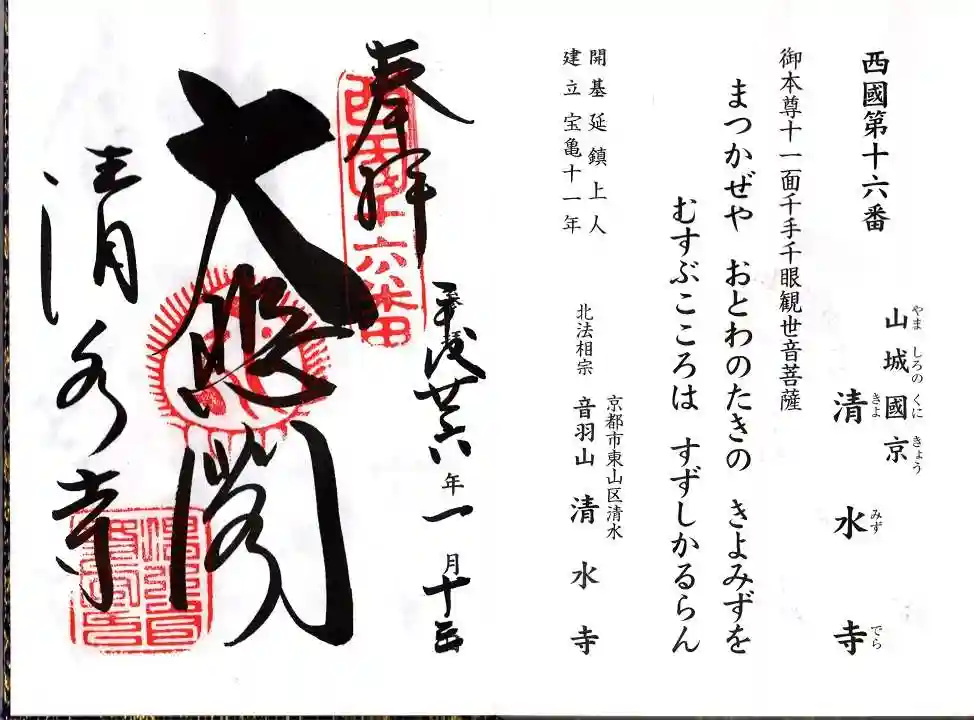 西國第十六番
山城國京
やましろのくにきょう
清水寺
きよみずでら
御本尊十一面千手千眼観世音菩薩
まつかぜや おとわのたきの きよみずを
むすぶこころは すずしかるらん
開基延鎮上人
建立宝亀十一年
京都市東山区清水
北法相宗 音羽山 清水寺
奉拝
西国十六番
平成廿六年一月十三
大悲閣
清水寺